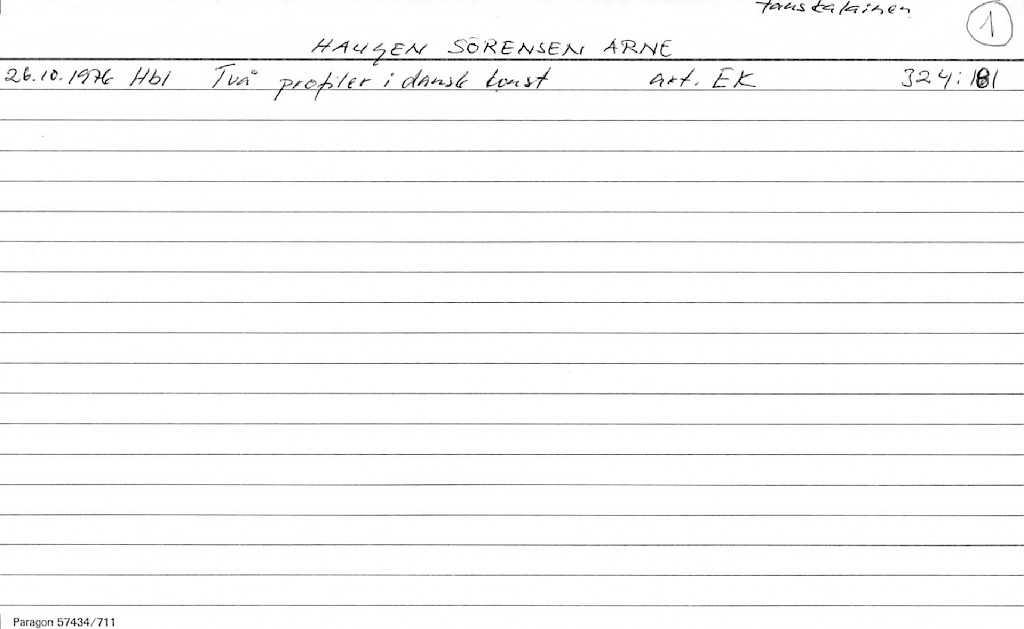 tanskalainen
1
HAUGEN SÖRENSEN ARNE
26.10.1976 Hbl Två profiler i dansk konst art. EK 324:181
Paragon 57434/711